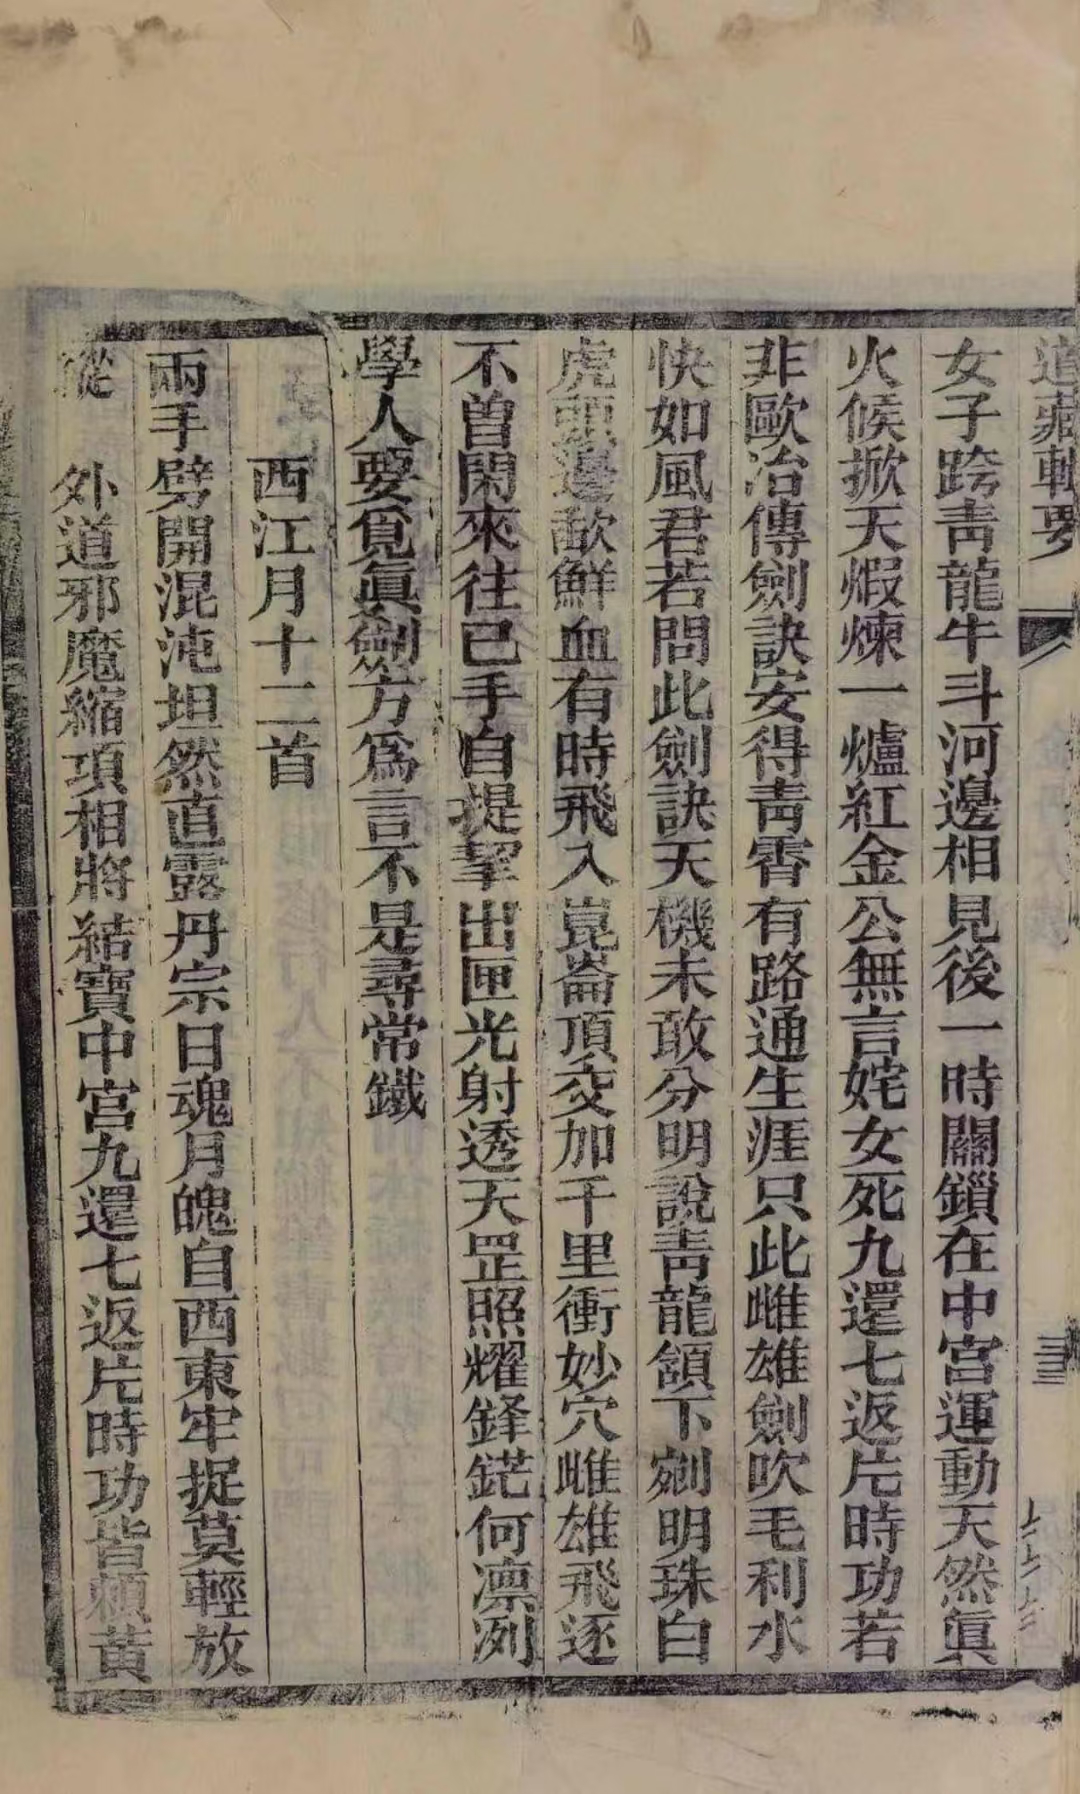 道藏輯要
女子跨靑龍牛斗河邊相見後一時關鎖在中宮運動天然眞
火候掀天煆煉一爐紅金公無言姹女死九還七返片時功若
非歐冶傳劍訣安得靑霄有路通生涯只此雌雄劍吹毛利水
快如風君若問此劍訣天機未敢分明說靑龍頷下剜明珠白
虎頭邊歃鮮血有時飛入崑崙頂交加千里衝妙穴雌雄飛逐
不曾閑來往已手自提挈出匣光射透天罡照耀鋒鋩何凛冽
學人要覓眞劍方爲言不是尋常鐵
西江月十二首
兩手劈開混沌坦然直露丹宗日魂月魄自西東牢捉莫輕放
縱 外道邪魔縮項相將結寶中宮九還七返片時功皆賴黃